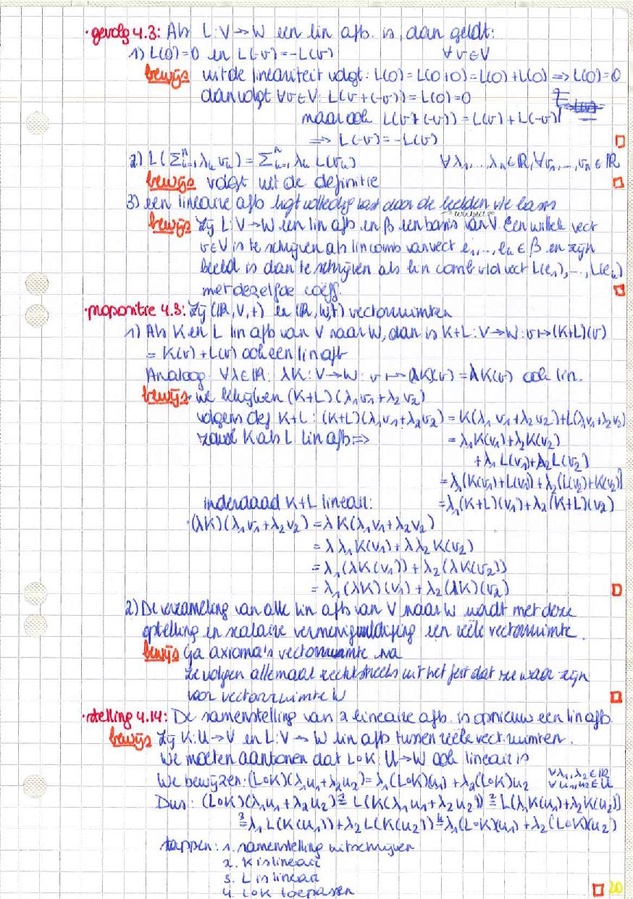 · gevolg 4.3: Als L: V → W een lin afb. is, dan geldt:
1) L(0) = 0 en L(-v) = -L(v) ∀v∈V
bewijs uit de lineariteit volgt: L(0) = L(0+0) = L(0) + L(0) ⟹ L(0) = 0
dan volgt ∀v∈V: L(v+(-v)) = L(0) = 0
maar ook L(v+(-v)) = L(v) + L(-v)
⟹ L(-v) = -L(v)
2) L(∑ⁿᵢ₌₁ λᵢ vᵢ) = ∑ⁿᵢ₌₁ λᵢ L(vᵢ) ∀λ₁, ..., λₙ ∈ ℝ, ∀v₁, ..., vₙ ∈ ℝ
bewijs volgt uit de definitie
3) een lineaire afb ligt volledig vast door de beelden vde basis
bewijs Zij L: V → W een lin afb en β een basis van V. Een willek vect
v∈V is te schrijven als lin comb van vect e₁, ..., eₙ ∈ β en zijn
beeld is dan te schrijven als lin comb vd vect L(e₁), ..., L(eₙ)
met dezelfde coëff.
· propositie 4.8: Zij (ℝ, V, +) en (ℝ, W, +) vectorruimten
1) Als K en L lin afb van V naar W, dan is K+L: V → W: v ↦ (K+L)(v)
= K(v) + L(v) ook een lin afb
Analoog: ∀λ∈ℝ: λK: V → W: v ↦ λK(v) = λK(v) ook lin.
bewijs · we bekijken (K+L)(λ₁v₁+λ₂v₂)
volgens def K+L: (K+L)(λ₁v₁+λ₂v₂) = K(λ₁v₁+λ₂v₂) + L(λ₁v₁+λ₂v₂)
zowel K als L lin afb ⟹ = λ₁K(v₁) + λ₂K(v₂)
+ λ₁L(v₁) + λ₂L(v₂)
= λ₁(K(v₁)+L(v₁)) + λ₂(L(v₂)+K(v₂))
inderdaad K+L lineair: = λ₁(K+L)(v₁) + λ₂(K+L)(v₂)
· (λK)(λ₁v₁+λ₂v₂) = λK(λ₁v₁+λ₂v₂)
= λλ₁K(v₁) + λλ₂K(v₂)
= λ₁(λK(v₁)) + λ₂(λK(v₂))
= λ₁(λK)(v₁) + λ₂(λK)(v₂)
2) De verzameling van alle lin afb van V naar W wordt met deze
optelling en scalaire vermenigvuldiging een reële vectorruimte.
bewijs Ga axioma's vectorruimte na
ze volgen allemaal rechtstreeks uit het feit dat ze waar zijn
voor vectorruimte W
· stelling 4.14: De samenstelling van 2 lineaire afb. is opnieuw een lin afb
bewijs Zij K: U → V en L: V → W lin afb tussen reële vect. ruimten.
We moeten aantonen dat L∘K: U → W ook lineair is
We bewijzen: (L∘K)(λ₁u₁+λ₂u₂) = λ₁(L∘K)(u₁) + λ₂(L∘K)u₂ ∀λ₁, λ₂∈ℝ
∀u₁, u₂∈U
Dus: (L∘K)(λ₁u₁+λ₂u₂) ¹= L(K(λ₁u₁+λ₂u₂)) ²= L(λ₁K(u₁)+λ₂K(u₂))
³= λ₁L(K(u₁)) + λ₂L(K(u₂)) ⁴= λ₁(L∘K)(u₁) + λ₂(L∘K)(u₂)
stappen: 1. samenstelling uitschrijven
2. K is lineair
3. L is lineair
4. L∘K toepassen
20